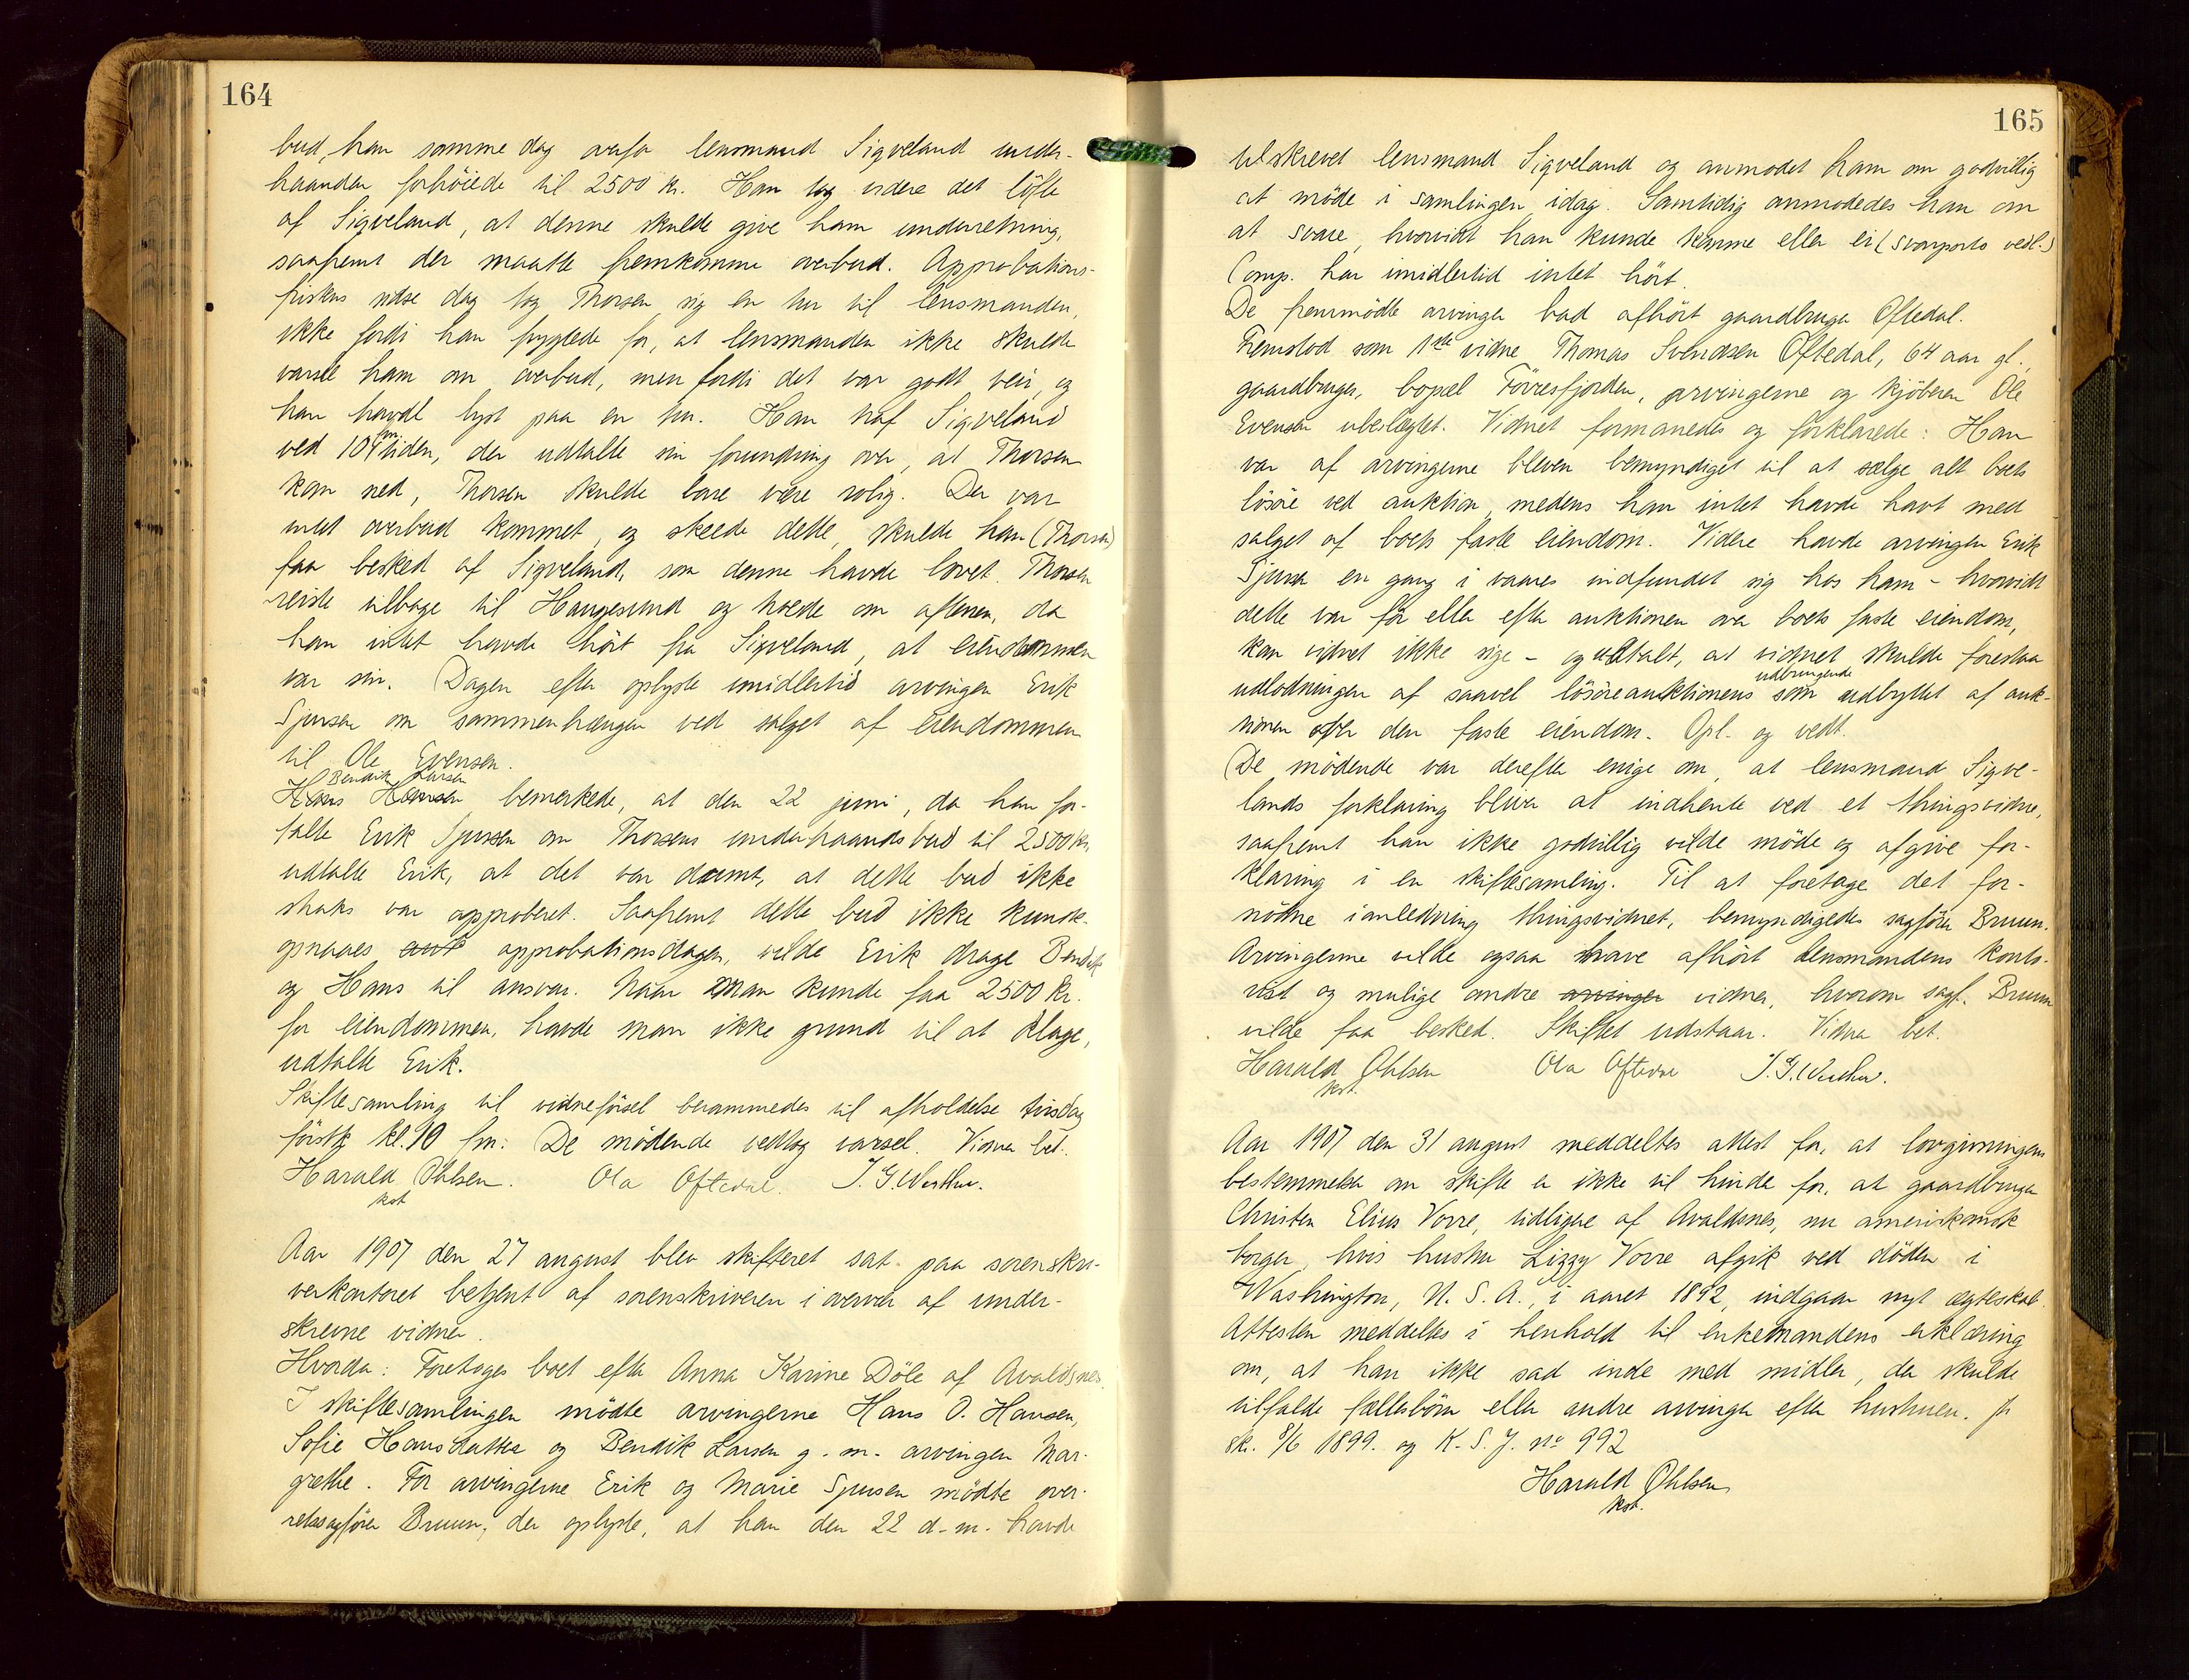 164
bud, han samme dag overfor lensmand Sigveland under-
haanden forhöiede til 2500 kr. Han tog videre det löfte
af Sigveland, at denne skulde give ham underretning,
saafremt der maatte fremkomme overbud. Approbations-
friskens sidste dag tog Thorsen sig en tur til lensmanden,
ikke fordi han frygtede for, at lensmanden ikke skulde
varsle ham om overbud, men fordi det var godt veir, og
han havde lyst paa en tur. Han traf Sigveland
ved 10 fm tiden, der udtalte sin forundring over, at Thorsen
kom ned, Thorsen skulde bare være rolig. Der var
intet overbud kommet, og skeede dette, skulde han (Thorsen)
faa besked af Sigveland, som denne havde lovet. Thorsen
reiste tilbage til Haugesund og troede om aftenen, da
han intet havde hört fra Sigveland, at eiendommen
var sin. Dagen efter oplyste imidlertid arvingen Erik
Sjursen om sammenhængen ved salget af eiendommen
til Ole Evensen.
Bendik Larsen
Hans Hansen bemerkede, at den 22 juni, da han for-
talte Erik Sjursen om Thorsens underhaandsbud til 2500 kr,
udtalte Erik, at det var dumt, at dette bud ikke
straks var approberet. Saafremt dette bud ikke kunde
opnaaes approbationsdagen, vilde Erik drage Bendik
og Hans til ansvar. Naar man kunde faa 2500 kr.
for eiendommen, havde man ikke grund til at klage,
udtalte Erik.
Skiftesamling til vidneförsel berammedes til afholdelse tirsdag
förstk kl. 10 fm. De mödende vedtog varsel. Vidner bet.
Harald Ohlsen. Ola Oftedal. J. G. Werther.
kst
Aar 1907 den 27 august blev skifteret sat paa sorenskri-
verkontoret betjent af sorenskriveren i overvær af under-
skrevne vidner.
Hvorda: Foretoges boet efter Anna Karine Döle af Avaldsnes.
I skiftesamlingen mödte arvingerne Hans O. Hansen,
Sofie Hansdatter og Bendik Larsen g. m. arvingen Mar-
grethe. For arvingerne Erik og Marie Sjursen mödte over-
retssagförer Bruun, der oplyste, at han den 22 d. m. havde
165
tilskrevet lensmand Sigveland og anmodet ham om godvillig
at möde i samlingen idag. Samtidig anmodedes han om
at svare, hvorvidt han kunde komme eller ei (svarporto vedl.)
Comp. har imidlertid intet hört.
De fremmödte arvinger bad afhört gaardbruger Oftedal.
Fremstod som 1ste vidne Thomas Svendsen Oftedal, 64 aar gl.,
gaardbruger, bopæl Förresfjorden, arvingerne og kjöberen Ole
Evensen ubeslægtet. Vidnet formanedes og forklarede: Han
var af arvingerne bleven bemyndiget til at sælge alt boets
lösöre ved auktion, medens han intet havde havt med
salget af boets faste eiendom. Videre havde arvingen Erik
Sjursen en gang i vaares indfundet sig hos ham - hvorvidt
dette var för eller efter auktionen over boets faste eiendom,
kan vidnet ikke sige - og udtalt, at vidnet skulde forestaa
udbringende
udlodningen af saavel lösöreauktionens som udbyttet af auk-
tionen over den faste eiendom. Opl. og vedt.
De mödende var derefter enige om, at lensmand Sigve-
lands forklaring bliver at indhente ved et thingsvidne,
saafremt han ikke godvillig vilde möde og afgive for-
klaring i en skiftesamling. Til at foretage det for-
nödne i anledning thingsvidnet, bemyndigedes sagförer Bruun.
Arvingerne vilde ogsaa have afhört lensmandens konto-
rist og mulige andre arvinger vidner, hvorom sagf. Bruun
vilde faa besked. Skiftet udstaar. Vidner bet.
Harald Ohlsen Ola Oftedal J. G. Werther.
kst.
Aar 1907 den 31 august meddeltes attest for, at lovgivningens
bestemmelser om skifte er ikke til hinder for, at gaardbruger
Christen Elius Vorre, tidligere af Avaldsnes, nu amerikansk
borger, hvis hustru Lizzy Vorre afgik ved döden i
Washington, U. S. A., i aaret 1892, indgaar nyt ægteskab.
Attesten meddeltes i henhold til enkemandens erklæring
om, at han ikke sad inde med midler, der skulde
tilfalde fællesbörn eller andre arvinger efter hustruen. Jr
sk. 8/6 1899. og K. S. J. No 992
Harald Ohlsen
kst.